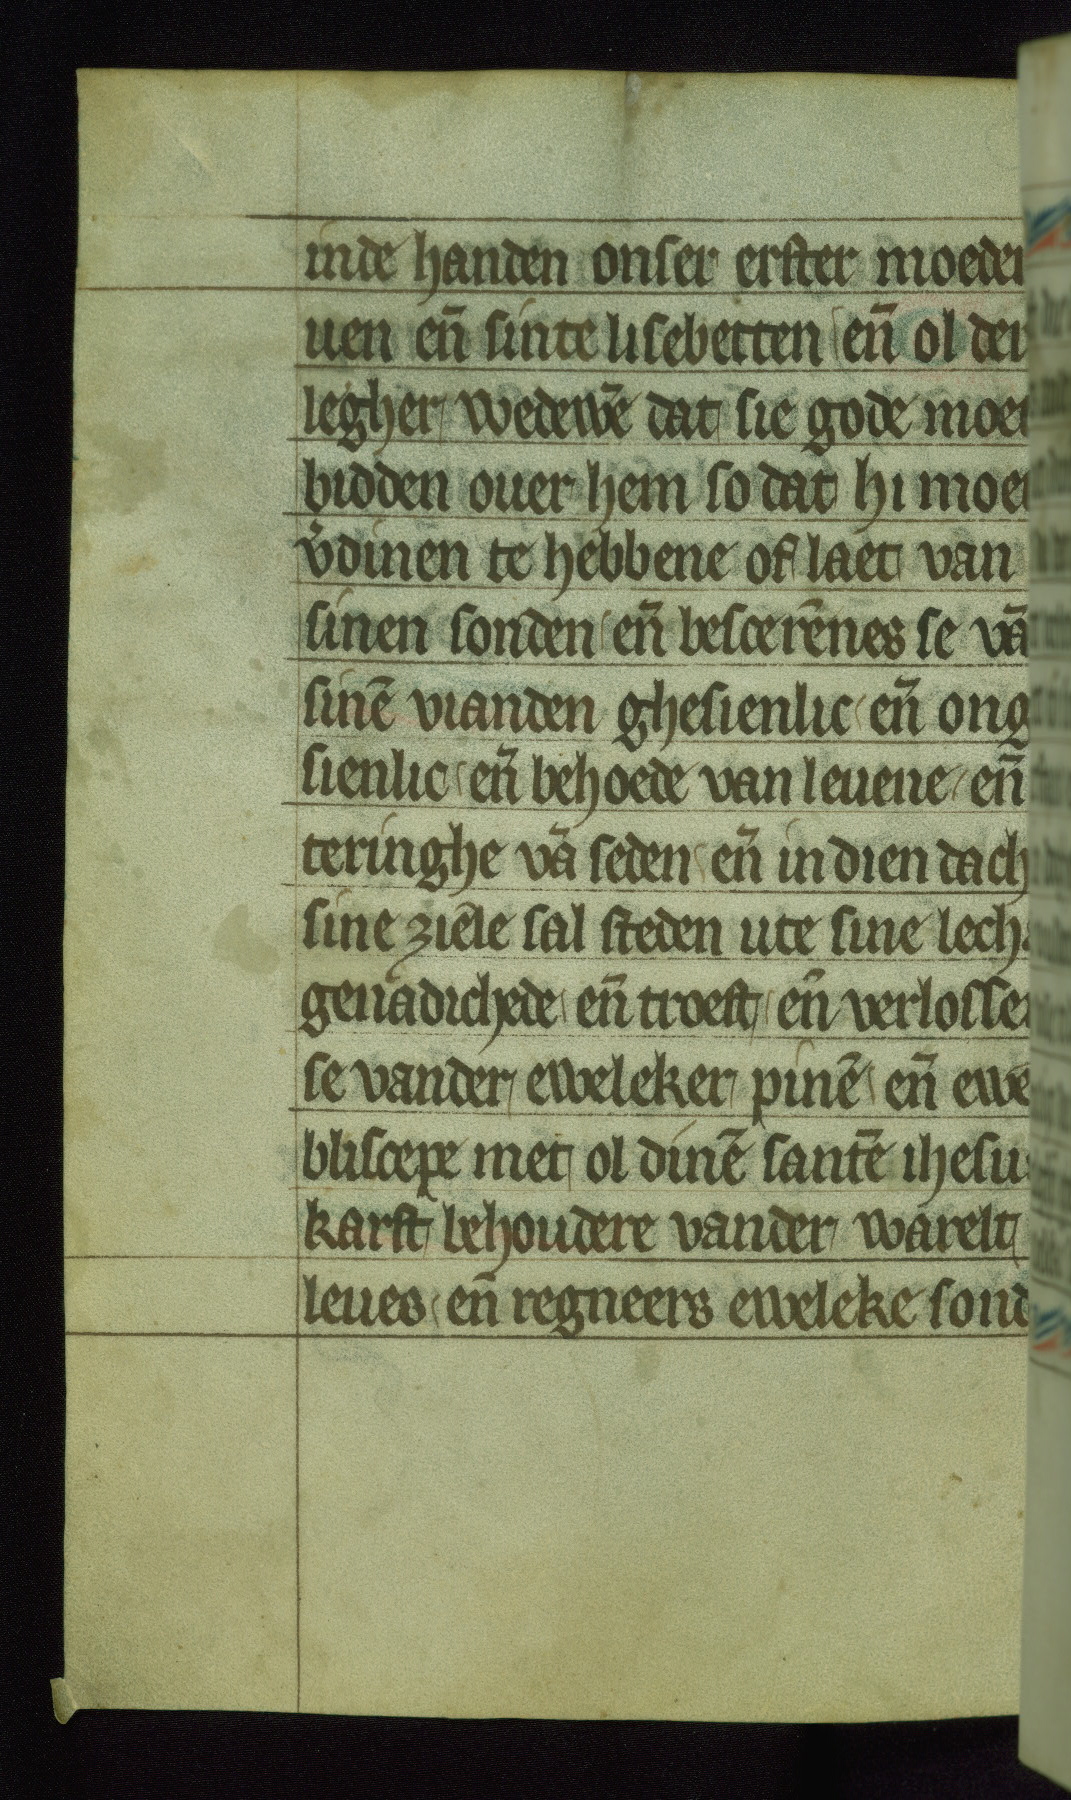 inde handen onser erster moeder
uen en̄ sinte lisebetten / en̄ ol der
legher wedewē dat sie gode moe
bidden ouer hem so dat hi moe
v̄dinen te hebbene of laet van
sinen sonden / en̄ bescermēnes se vā
sinē vianden ghesienlic / en̄ ong
sienlic / en̄ behoede van leuene / en̄
teringhe vā seden / en̄ in dien dach
sine ziele sal sceden ute sine lech
genādichede / en̄ troest / en̄ verlosse
se vander eweleker pinē / en̄ ewe
bliscepe met ol dinē santē ihesu
karst behoudere vander warelt
leues / en̄ regneers eweleke sond